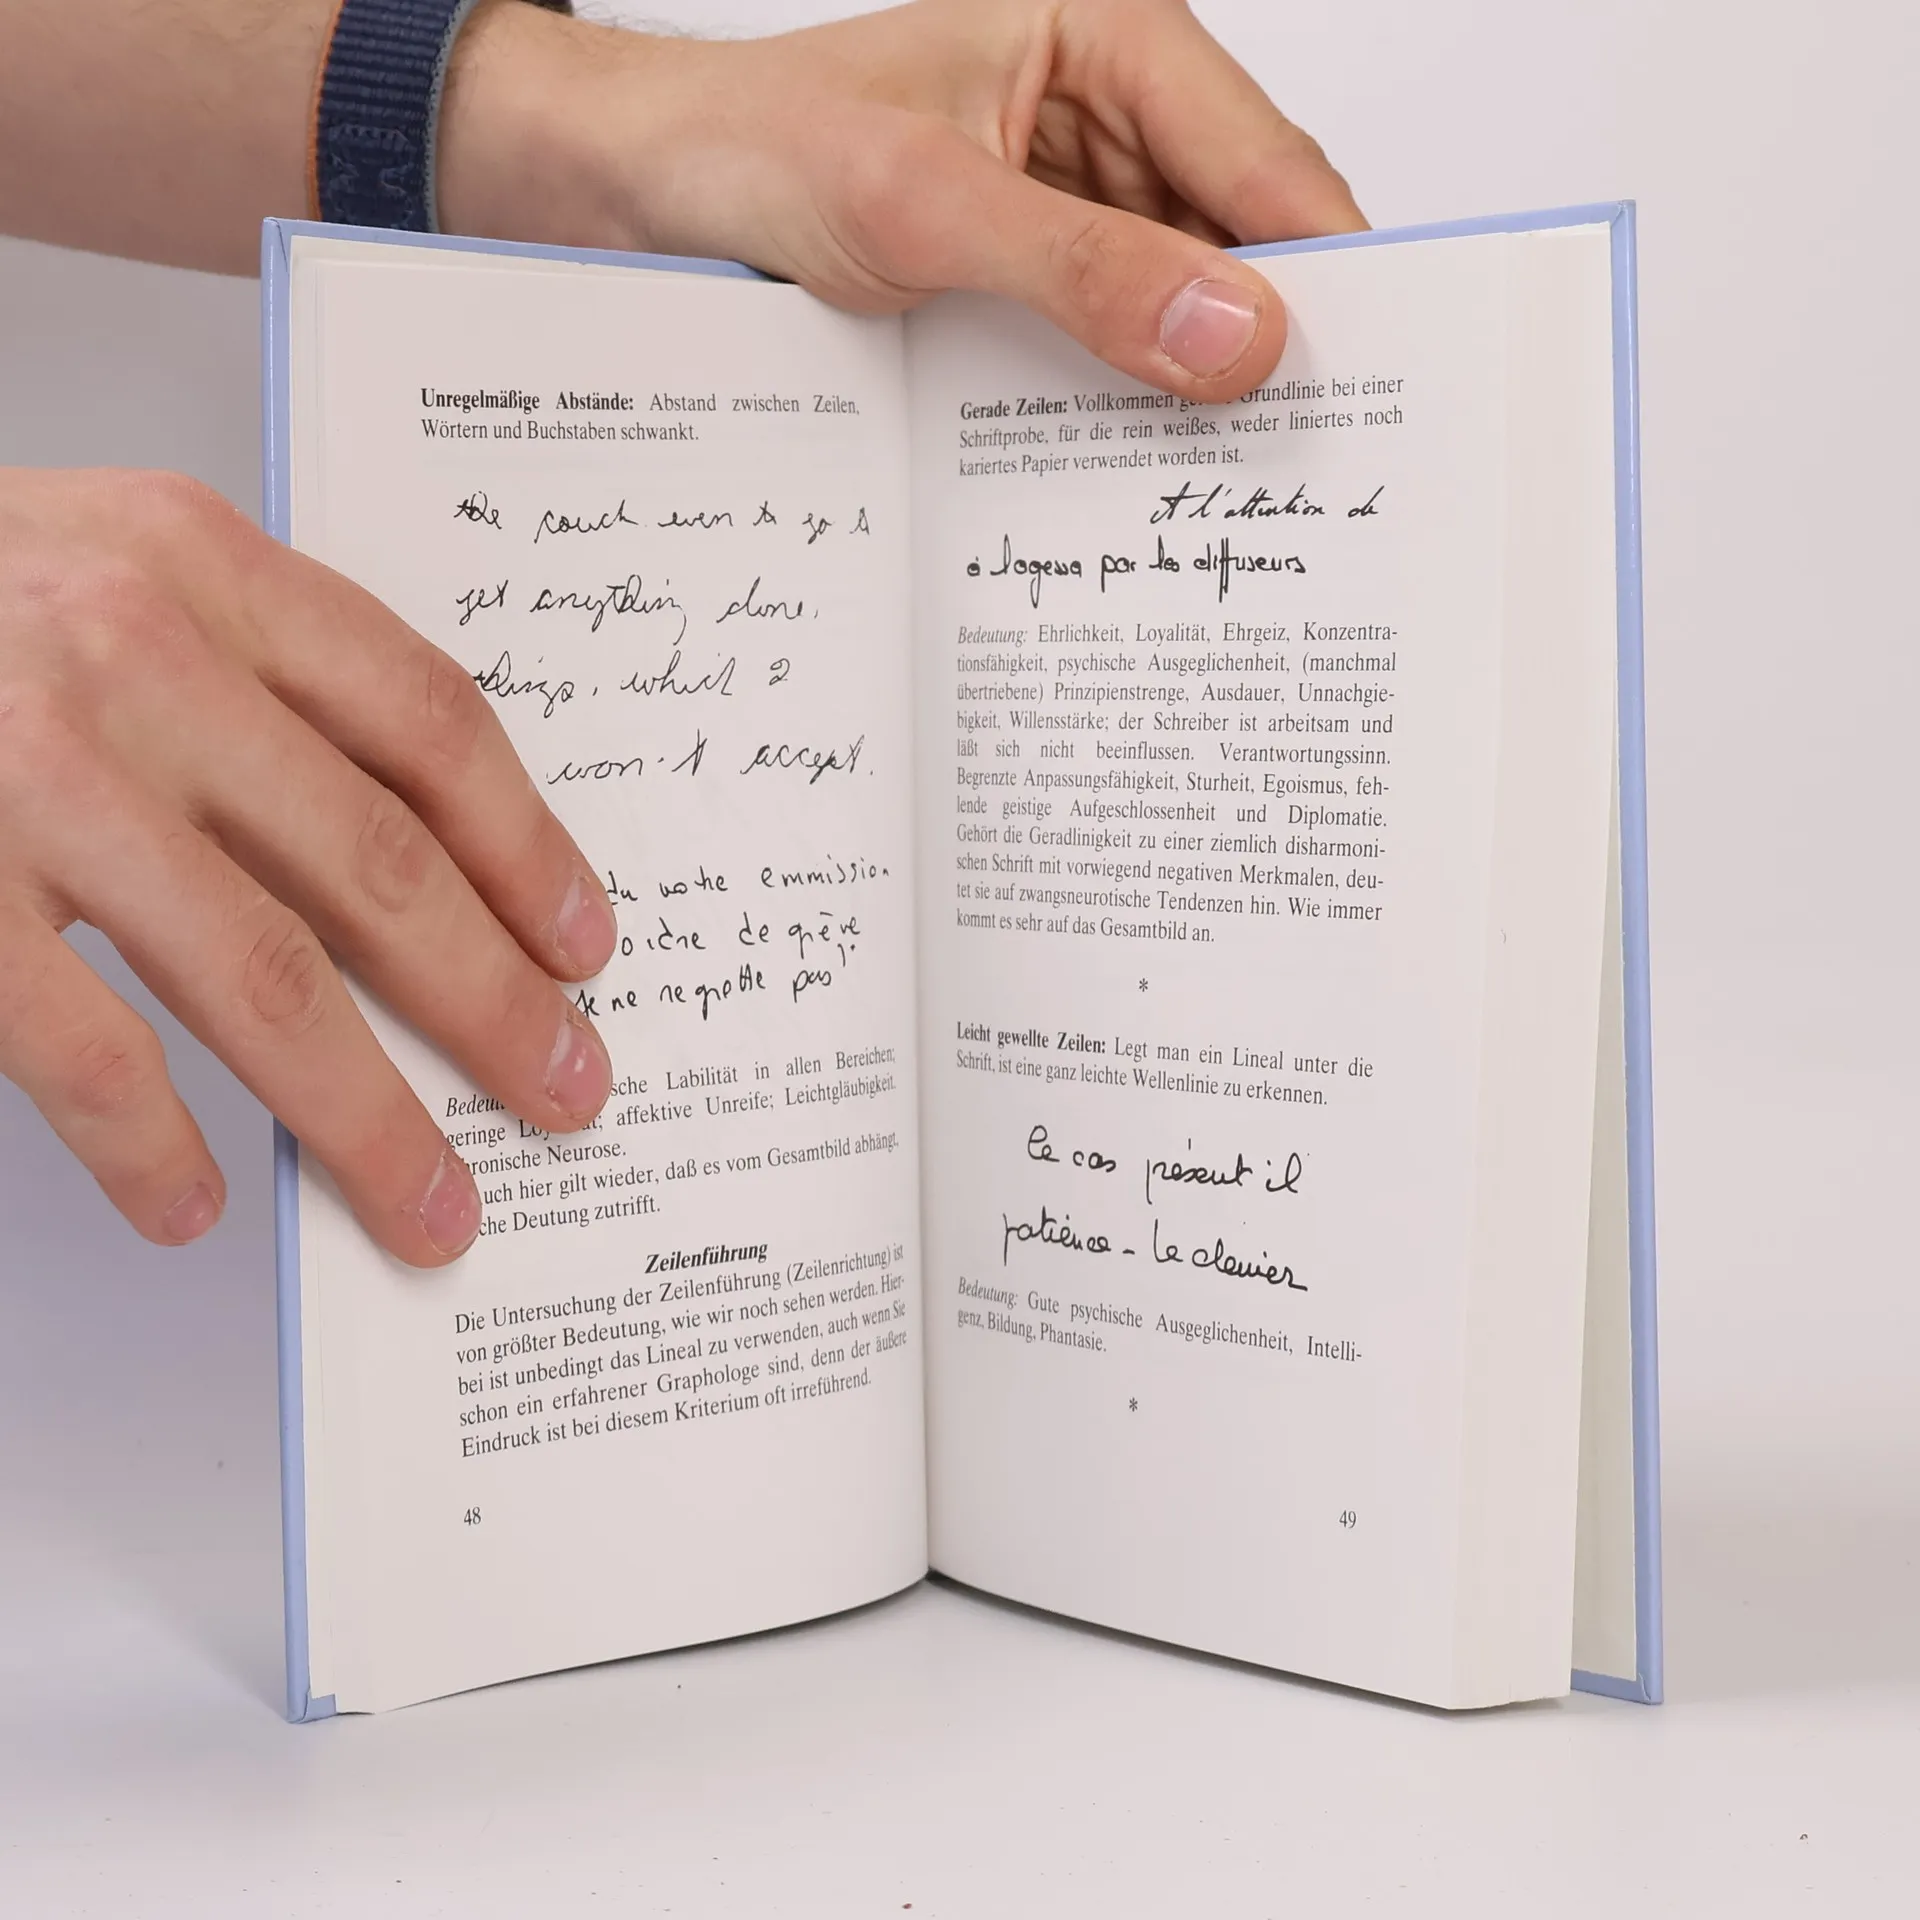 Unregelmäßige Abstände: Abstand zwischen Zeilen,
Wörtern und Buchstaben schwankt.
the couch even to go to
get anything done,
things, which I
won't accept.
du votre emmission
ordre de grève
Je ne regrette pas
sche Labilität in allen Bereichen;
geringe affektive Unreife; Leichtgläubigkeit.
hronische Neurose.
uch hier gilt wieder, daß es vom Gesamtbild abhängt,
che Deutung zutrifft.
Zeilenführung
Die Untersuchung der Zeilenführung (Zeilenrichtung) ist
von größter Bedeutung, wie wir noch sehen werden. Hier-
bei ist unbedingt das Lineal zu verwenden, auch wenn Sie
schon ein erfahrener Graphologe sind, denn der äußere
Eindruck ist bei diesem Kriterium oft irreführend.
48
Gerade Zeilen: Vollkommen Grundlinie bei einer
Schriftprobe, für die rein weißes, weder liniertes noch
kariertes Papier verwendet worden ist.
A l'attention de
par les diffuseurs
Bedeutung: Ehrlichkeit, Loyalität, Ehrgeiz, Konzentra-
tionsfähigkeit, psychische Ausgeglichenheit, (manchmal
übertriebene) Prinzipienstrenge, Ausdauer, Unnachgie-
bigkeit, Willensstärke; der Schreiber ist arbeitsam und
läßt sich nicht beeinflussen. Verantwortungssinn.
Begrenzte Anpassungsfähigkeit, Sturheit, Egoismus, feh-
lende geistige Aufgeschlossenheit und Diplomatie.
Gehört die Geradlinigkeit zu einer ziemlich disharmoni-
schen Schrift mit vorwiegend negativen Merkmalen, deu-
tet sie auf zwangsneurotische Tendenzen hin. Wie immer
kommt es sehr auf das Gesamtbild an.
*
Leicht gewellte Zeilen: Legt man ein Lineal unter die
Schrift, ist eine ganz leichte Wellenlinie zu erkennen.
le cas présent il
patience - Le
Bedeutung: Gute psychische Ausgeglichenheit, Intelli-
genz, Bildung, Phantasie.
*
49